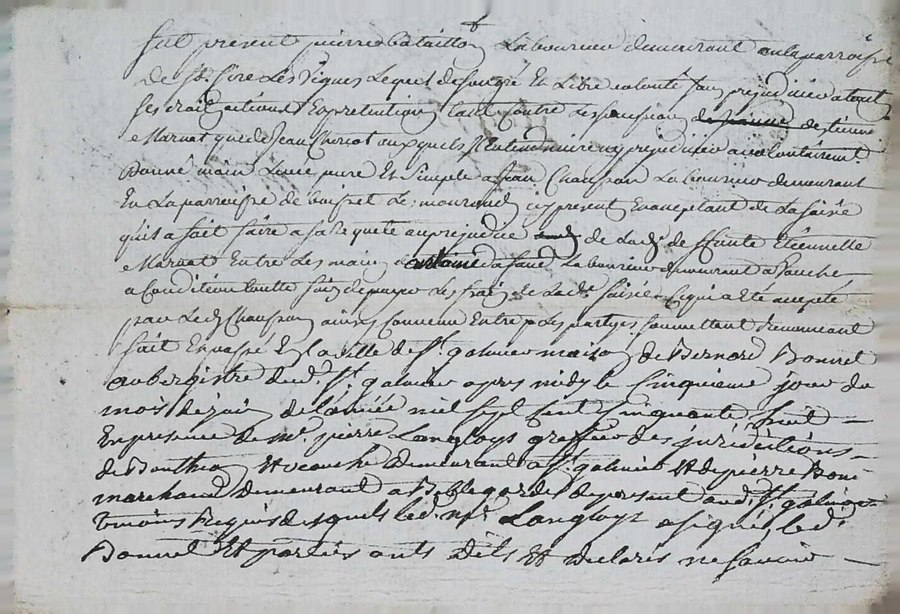 fut present pierre bataillon Laboureur demeurant en la parroisse
de St Cire Les Vignes Lequel de son gré En Libre volonté sans prejudicier a touts
ses droits actions Et pretentions tant contre Les d'Etienne
Marnat que de Jean Chariot auxquels N'Entend prejudicier a volontairement
Donné main Levée pure Et Simple a Jean Chausson Laboureur demeurant
En La parroisse de boisset Le present Et acceptant de La saisie
qu'il a fait faire a sa requete au prejudice de Lad. Etiennette
Marnat Entre Les mains Laboureur demeurant a
a Condition toutte fois de payer Les frais de Lad. saisie Ce qui a Eté accepté
par Led. Chausson ainsy Convenu Entre Les partyes soumettant Renonceant
fait Et passé En la ville de St. galmier maison de Bernard Bonnet
aubergiste dud. St. galmier apres midy le Cinquieme jour du
mois de juin de l'année mil sept cent cinquante huit
En presence de Me. pierre Langloys greffier des juridictions
de Bouthéon Et demeurant a St. galmier Et de pierre
marchand demeurant a Bellegarde de present aud. St. galmier
temoins Requis desquels led. Me. Langloys a signé, led.
Bonnet Et parties ont dits Et declarés ne scavoir